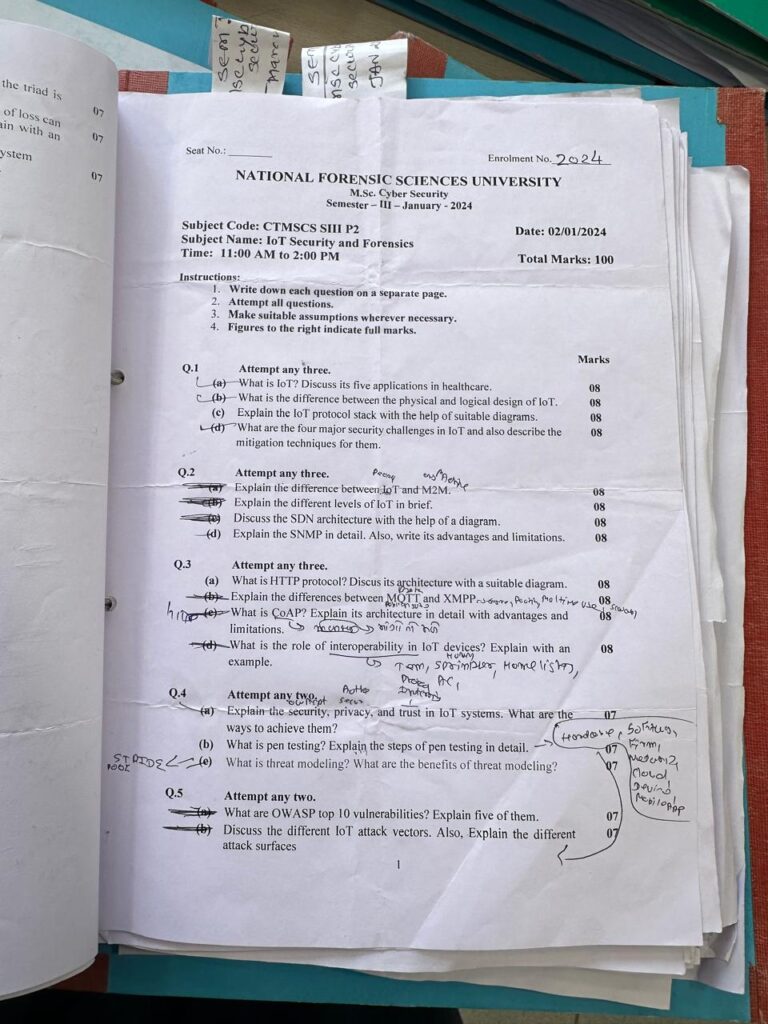 SEM
MSC Cyb
secu
March
SEM
MSC Cy
secur
JAN 2
the triad is
07
of loss can
ain with an
07
ystem
07
Seat No.: ______
Enrolment No. 2024
NATIONAL FORENSIC SCIENCES UNIVERSITY
M.Sc. Cyber Security
Semester – III – January - 2024
Subject Code: CTMSCS SIII P2
Date: 02/01/2024
Subject Name: IoT Security and Forensics
Time: 11:00 AM to 2:00 PM
Total Marks: 100
Instructions:
1. Write down each question on a separate page.
2. Attempt all questions.
3. Make suitable assumptions wherever necessary.
4. Figures to the right indicate full marks.
Marks
Q.1 Attempt any three.
(a) What is IoT? Discuss its five applications in healthcare. 08
(b) What is the difference between the physical and logical design of IoT. 08
(c) Explain the IoT protocol stack with the help of suitable diagrams. 08
(d) What are the four major security challenges in IoT and also describe the 08
mitigation techniques for them.
Q.2 Attempt any three.
(a) Explain the difference between IoT and M2M. 08
(b) Explain the different levels of IoT in brief. 08
(c) Discuss the SDN architecture with the help of a diagram. 08
(d) Explain the SNMP in detail. Also, write its advantages and limitations. 08
Q.3 Attempt any three.
(a) What is HTTP protocol? Discus its architecture with a suitable diagram. 08
(b) Explain the differences between MQTT and XMPP 08
(c) What is CoAP? Explain its architecture in detail with advantages and 08
limitations.
(d) What is the role of interoperability in IoT devices? Explain with an 08
example.
Tam, Sprinkler, Home lists,
AC,
Q.4 Attempt any two.
(a) Explain the security, privacy, and trust in IoT systems. What are the 07
ways to achieve them?
(b) What is pen testing? Explain the steps of pen testing in detail. 07
Hardware, Software,
Firm,
Network,
Cloud
Mobile App
STRIDE
(c) What is threat modeling? What are the benefits of threat modeling? 07
Q.5 Attempt any two.
(a) What are OWASP top 10 vulnerabilities? Explain five of them. 07
(b) Discuss the different IoT attack vectors. Also, Explain the different 07
attack surfaces
1